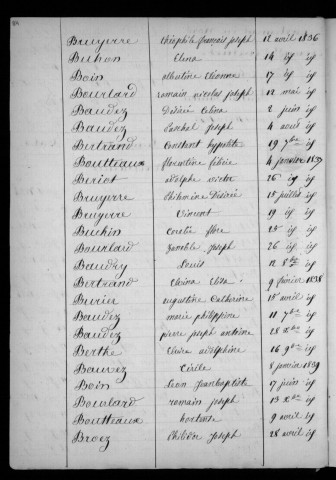 Bruyerre théophile françois joseph 12 avril 1836
Buhon Elina 14 id
Boin albertine Eléonne 17 id
Bourlard romain nicolas joseph 12 mai id
Baudez Désirée Celina 2 juin id
Baudez joseph 4 aout id
Bertrand Constant hypolite 19 7bre id
Boutteaux florentine félicie 4 janvier 1837
Beriot adolphe victor 26 id id
Bruyerre philomène Désirée 15 juillet id
Bruyerre Vincent 19 id id
Buchin Coralie flore 25 id id
Bourlard joseph 26 id id
Baudry Louis 12 8bre id
Bertrand Elvina Eliza 9 février 1838
Burier augustine Catherine 15 avril id
Baudez marie philippine 11 7bre id
Baudez pierre joseph antoine 28 Xbre id
Berthe Elvira adolphine 16 9bre id
Bauvez Cirile 8 janvier 1839
Boin Léon jeanbaptiste 17 juin id
Bourlard romain joseph 13 Xbre id
Boutteaux hortense 9 avril id
Broez philidor joseph 28 avril id